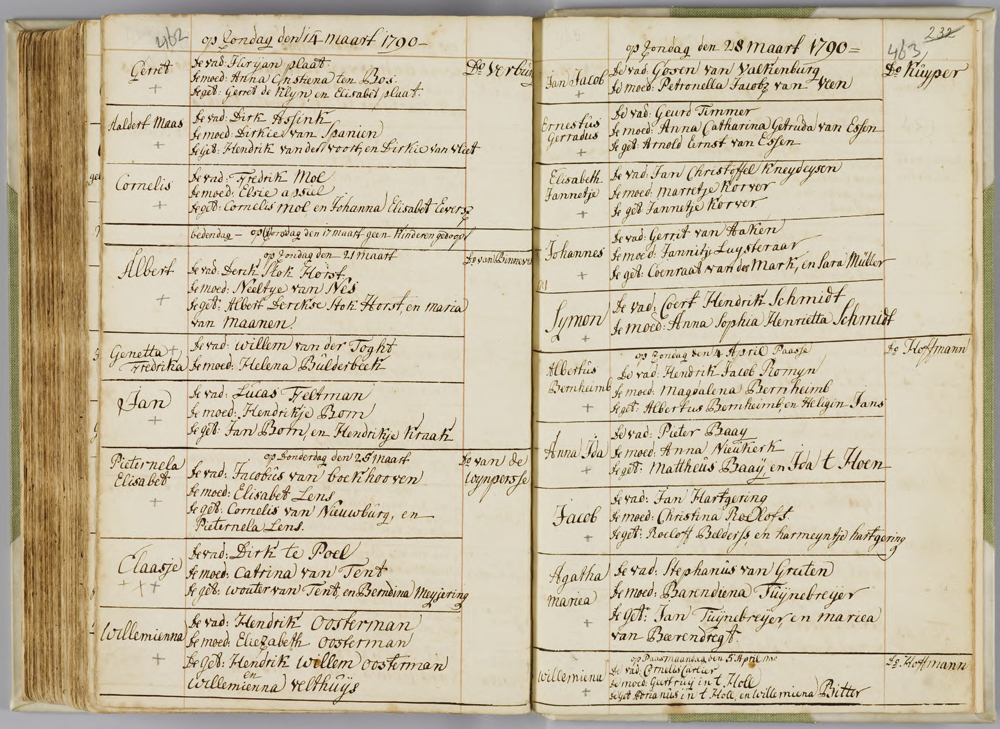 462
op Zondag den 14 maart 1790
Gerret
de vad: Flerijan plaat
de moed: Anna Cristiena ten Bos.
de get: Gerret de Klyn, en Elisabet plaat.
Do Verbrin
Haldert Maas
de vad: Dirk Assink
de moed: Dirkie van Spanien
de get: Hendrik van der voort, en Dirkie van vliet
Cornelis
de vad: Fredrik Mol
de moed: Elsie assiel
de get: Cornelis mol en Johanna Elisabet Evers
bededag — op Woensdag den 17 maart geen Kinderen gedoopt
op Zondag den 21 maart
Do van Binnevest
Albert
de vad: Derck Hok Horst
de moed: Neeltye van Nes
de get: Albert Derckse Hok Horst, en maria
van maanen.
Genetta
Fredrika
de vad: willem van der Toght
de moed: Helena Bulderbeek
Jan
de vad: Lucas Feltman
de moed: Hendrikje Born
de get: Jan Born, en Hendrikje Kraak
op Donderdag den 25 maart
Do van de
Wynpersse
Pieternela
Elisabet
de vad: Jacobus van Goekhooven
de moed: Elisabet Lens
de get: Cornelis van Nieuwburg, en
Pieternela Lens.
Claasje
de vad: Dirk te Poel
de moed: Catrina van Tent
de get: wouter van Tent, en Berndina Meyjering
Willemienna
de vad: Hendrik Oosterman
de moed: Eliezabeth Oosterman
de get: Hendrik Willem Oosterman
en
Willemienna Velthuys
463
232
op Zondag den 28 maart 1790
Do Kuyper
Jan Jacob
de vad: Goven van Valkenburg
de moed: Petronella Jacobz van Veen
Ernestus
Gerradus
de vad: Geurd Timmer
de moed: Anna Catharina Getruda van Essen
de get Arnold Ernst van Essen
Elisabeth
Jannetje
de vad: Jan Christoffel Kneydeysen
de moed: Marretje Korver
de get Jannetje Korver
Johannes
de vad: Gerrit van Haken
de moed: Jannitje Luysteraar
de get: Coenraat van der Mark, en Sara Müller
Symon
de vad: Coert Hendrik Schmidt
de moed: Anna Sophia Henrietta Schmidt
op Zondag den 4 April Paasse
Do Hoffmann
Albertus
Bernheimb
de vad: Hendrik Jacob Romyn
de moed: Magdalena Bernheimb
de get: Albertus Bernheimb, en Heligin Jans
Anna Ida
de vad: Pieter Baay
de moed: Anna Nieukerk
de get: Mattheus Baay en Ida t Hoen
Jacob
de vad: Jan Hartgering
de moed: Christina Roeloft
de get: Roeloff Belders, en harmeyntje hartgering
Agatha
mariea
de vad: Stephanus van Graten
de moed: Barendiena Tuynebreyer
de get: Jan Tuynebreyer en mariea
van Bærendregt.
op Paasmaandag den 5 April
Do Hoffmann
Willemiena
de vad: Cornelis Carlier
de moed: Geertruy in t Holl
de get Adrianus in t Holl, en Willemiena Bitter